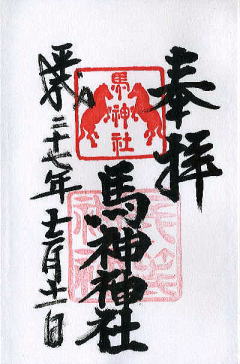 奉拝
馬神社
馬神神社
平成二十七年十二月十一日